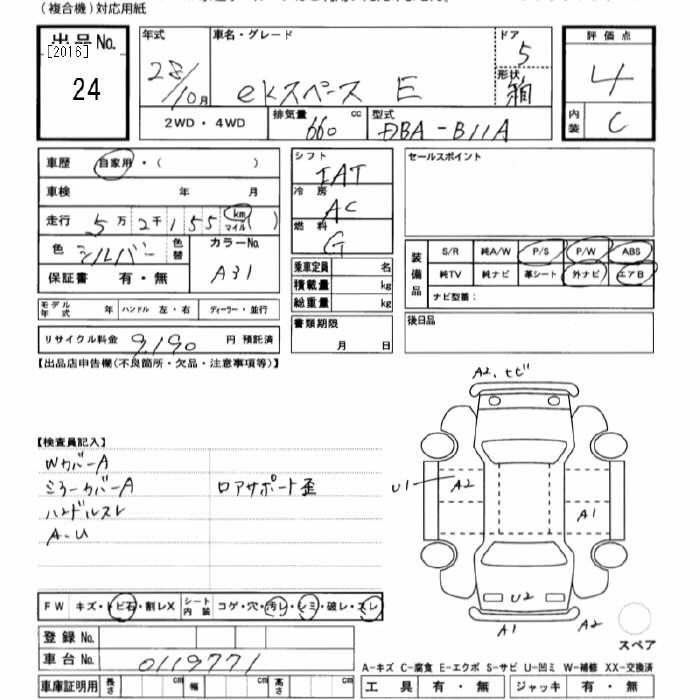 (複合機)対応用紙
出品No.
[2016]
24
年式
28/10月
車名・グレード
ekスペース E
ドア
5
形状
箱
評価点
4
内装
C
2WD・4WD
排気量
660 cc
型式
DBA-B11A
車歴 自家用・( )
車検 年 月
走行 5万2千155 km マイル ( )
色 シルバー 色替
カラーNo.
A31
保証書 有・無
モデル年式 年 ハンドル 左・右 ディーラー・並行
リサイクル料金 9,190 円 預託済
シフト
IAT
冷房
AC
燃料
G
乗車定員 名
積載量 kg
総重量 kg
書類期限
月 日
セールスポイント
装備品
S/R 純A/W P/S P/W ABS
純TV 純ナビ 革シート 外ナビ エアB
ナビ型番:
後日品
【出品店申告欄(不良箇所・欠品・注意事項等)】
【検査員記入】
Wカバー A
ミラーカバー A
ロアサポート歪
ハンドルスレ
A-U
A2.トビ
U1
A2
A1
U2
A1
A2
スペア
FW キズ・トビ石・割レX
シート内装 コゲ・穴・汚レ・シミ・破レ・スレ
登録No.
車台No.
0119771
車庫証明用 長さ cm 幅 cm 高さ cm
A-キズ C-腐食 E-エクボ S-サビ U-凹ミ W-補修 XX-交換済
工具 有・無 ジャッキ 有・無